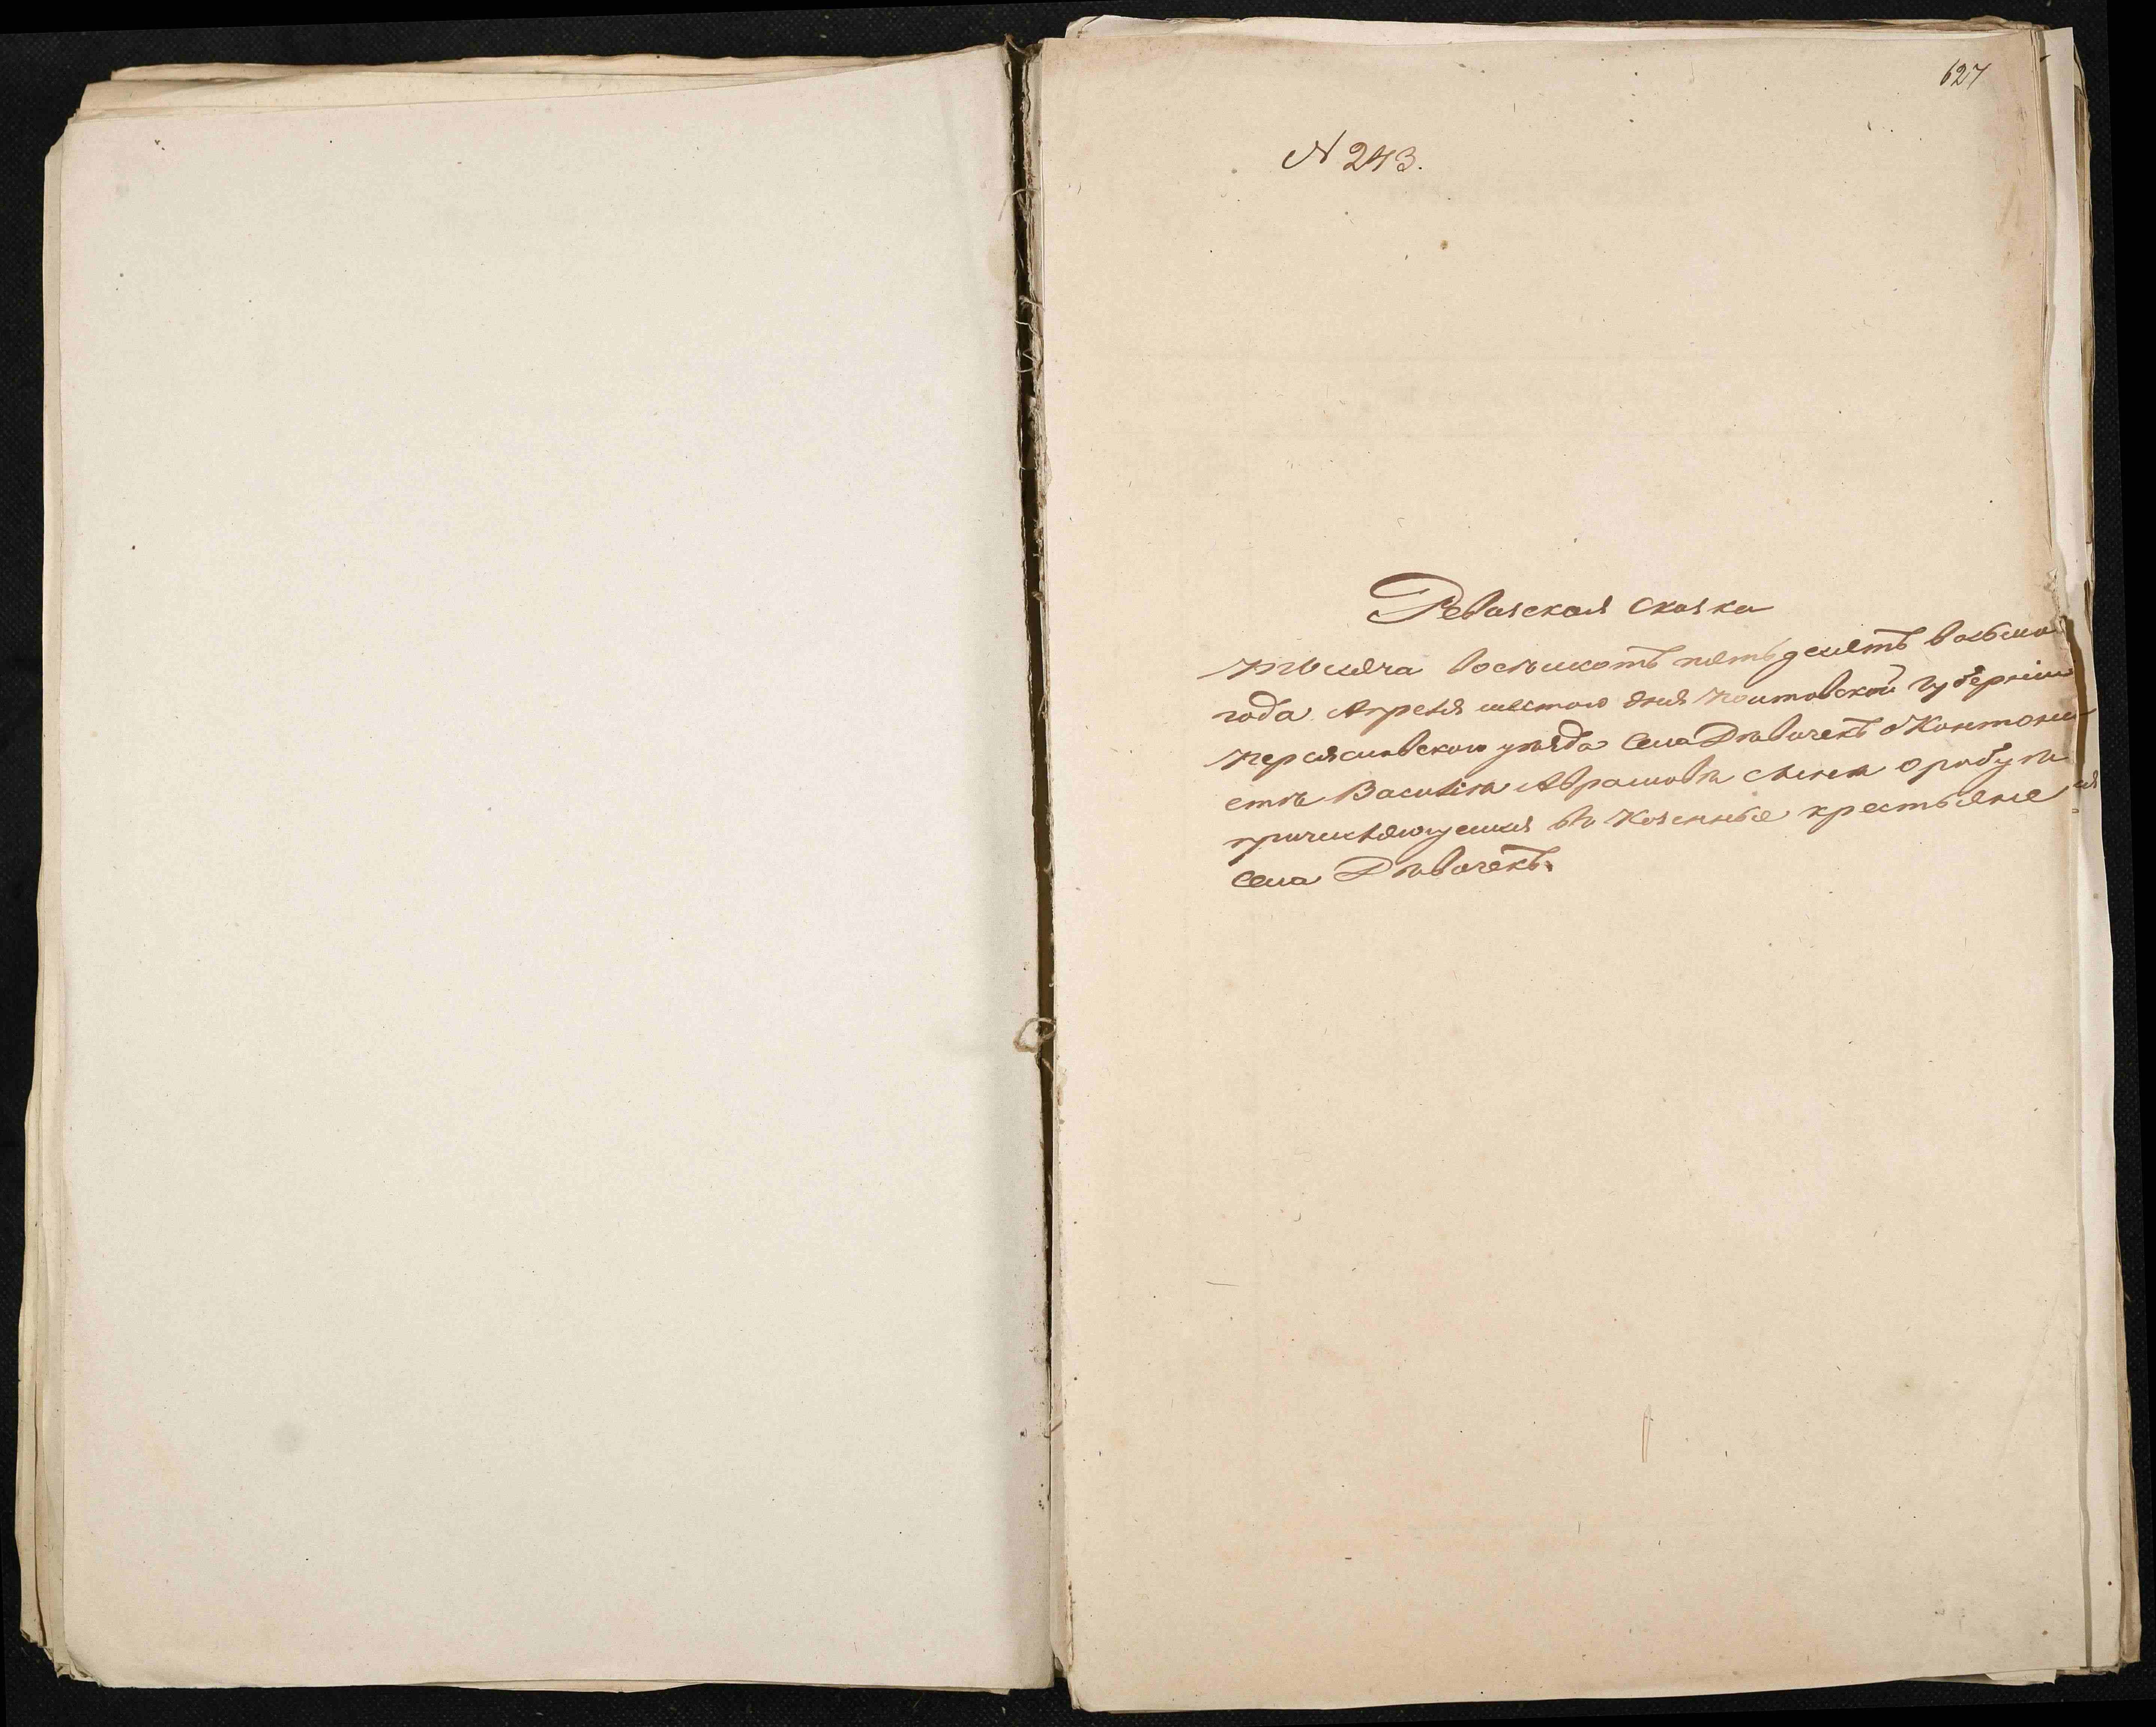 627
N 243.
Ревизская сказка
тысяча восемсотъ пятьдесятъ восьмо
года Апреля шестого дня Полтавской губерніи
Переяславского уѣзда Села Дѣвичекъ о Кантони
стѣ Василіѣ Абрамовѣ сынѣ
причисляющемся въ Казенные крестьяне
села Дѣвичекъ.